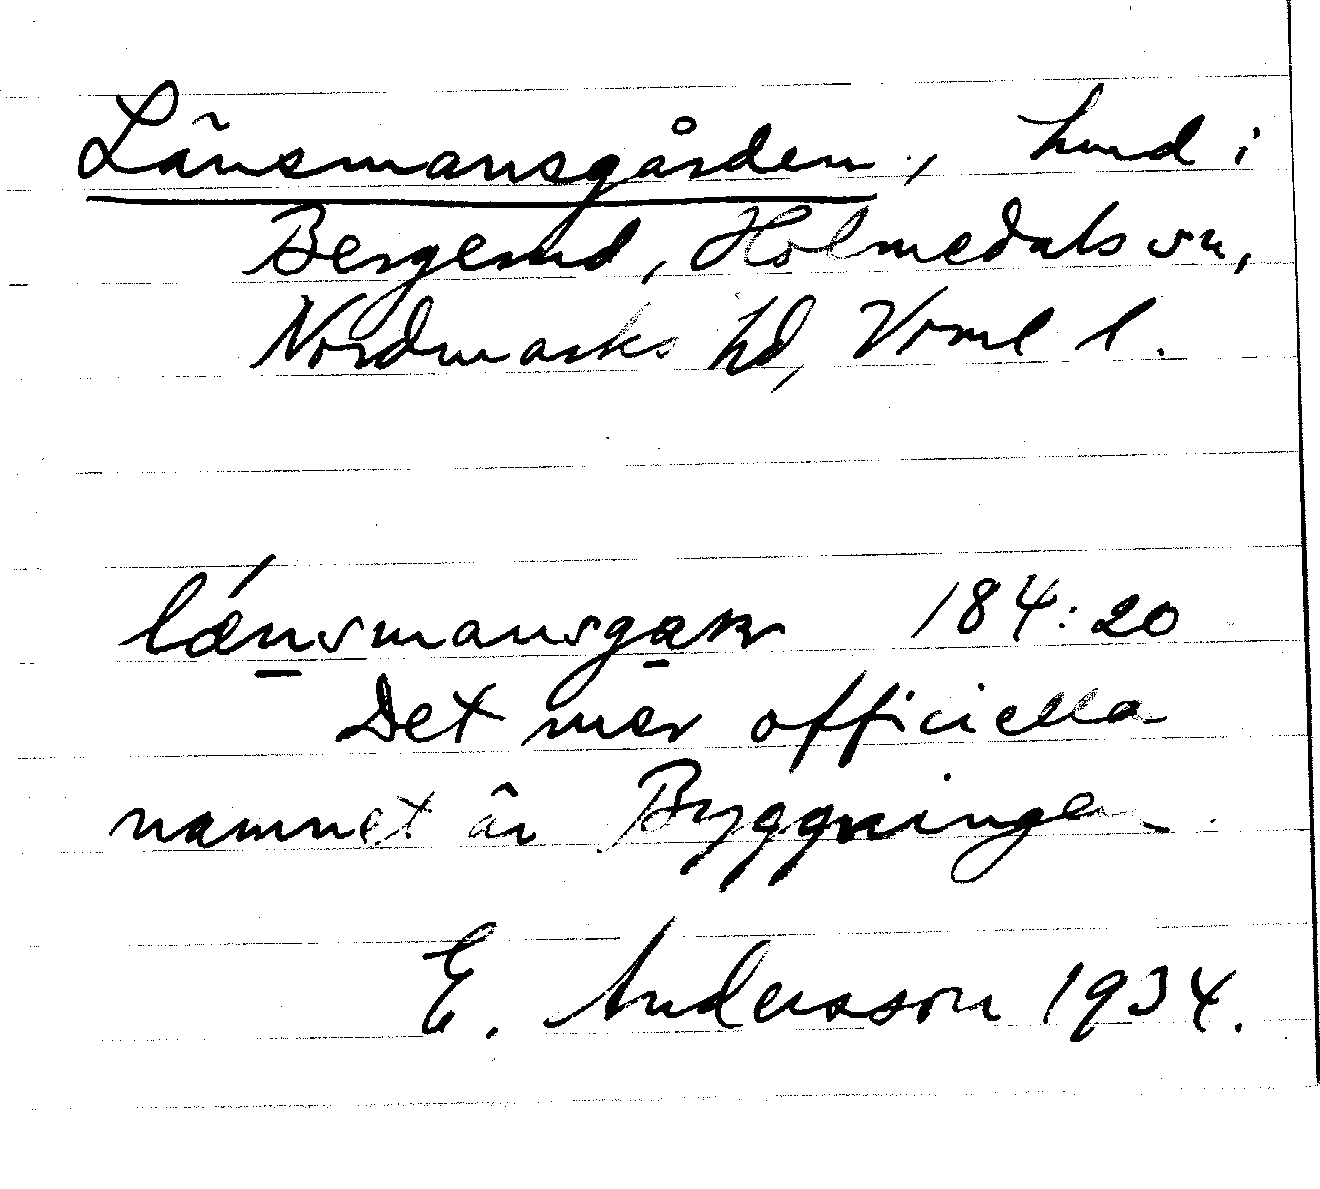 Länsmansgården, hmd i
Bergerud, Holmedals sn,
Nordmarks hd, Vrml l.
lǽnsmansgaɳ 184:20
Det mer officiella
namnet är Byggningen
E. Andersson 1934.